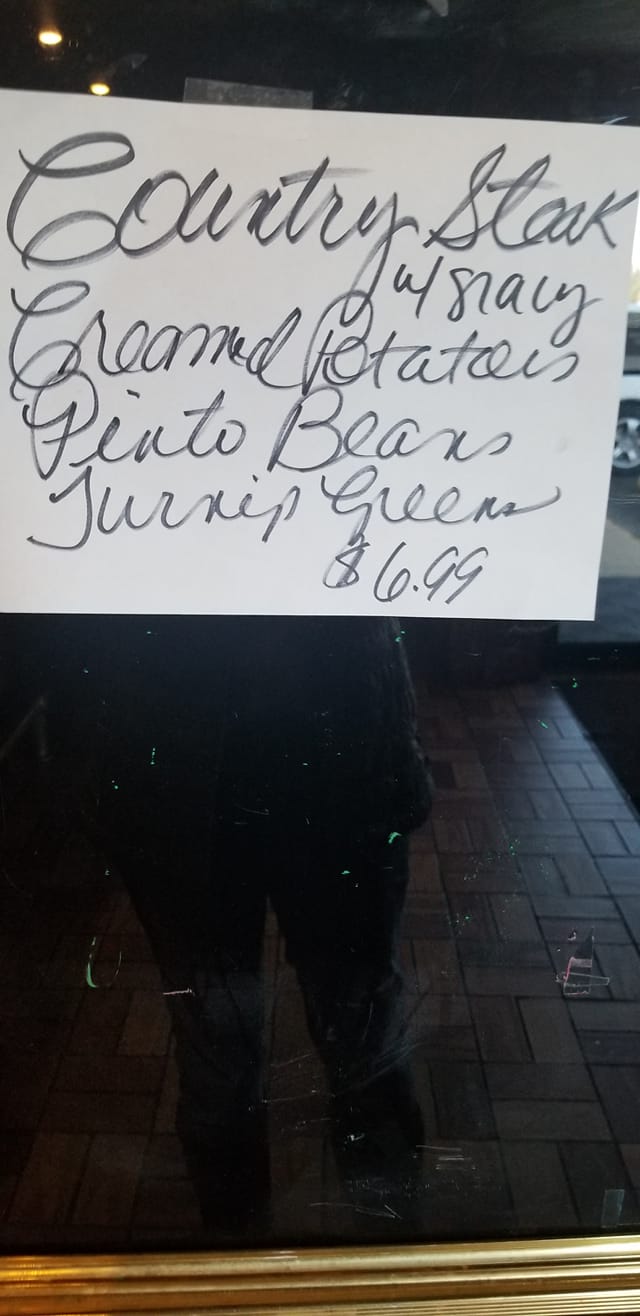 Country Steak
w/ gravy
Creamed Potatoes
Pinto Beans
Turnip Greens
$6.99